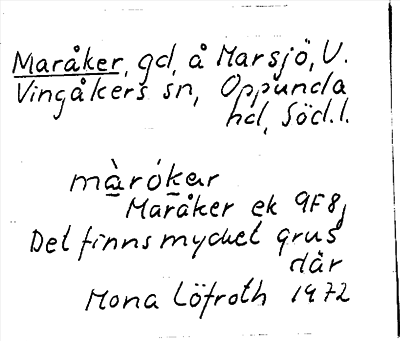 Maråker, gd, å Marsjö, V.
Vingåkers sn, Oppunda
hd, Söd.l.
màrókar
Maråker ek 9F8j
Det finns mycket grus
där
Mona Löfroth 1972